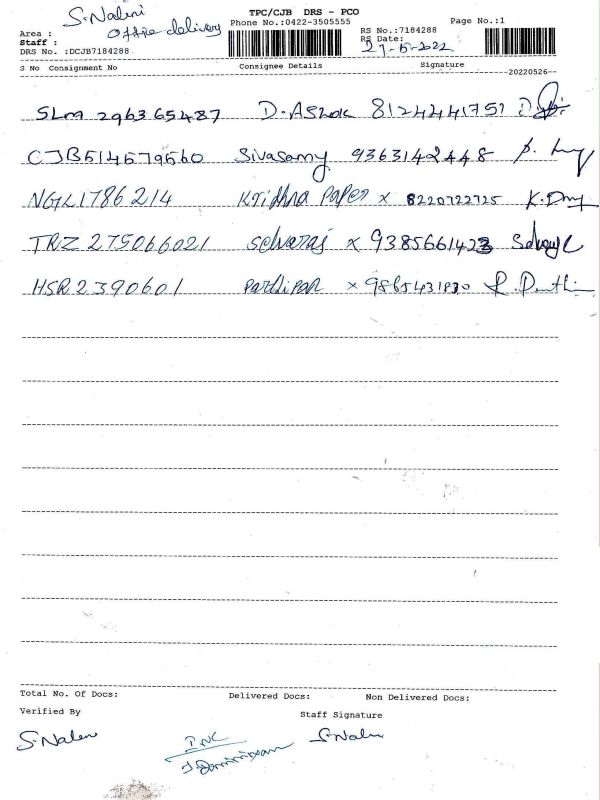 S. Nalini
TPC/CJB DRS - PCO
Office delivery
Phone No.:0422-3505555
Page No.:1
Area :
Staff :
DRS No. :DCJB7184288
RS No.:7184288
RS Date:
27-5-2022
S No Consignment No Consignee Details Signature
20220526
SLM 296365487 D. Ashok 8124441751
CJB514579560 Sivasamy 9363142448
NGL1786214 Kridhna Paper x 8220722725
TRZ 275066021 selvaraj x 9385661423
HSR2390601 pardipan x 9865431830
Total No. Of Docs: Delivered Docs: Non Delivered Docs:
Verified By Staff Signature
S. Nalini S. Nalini